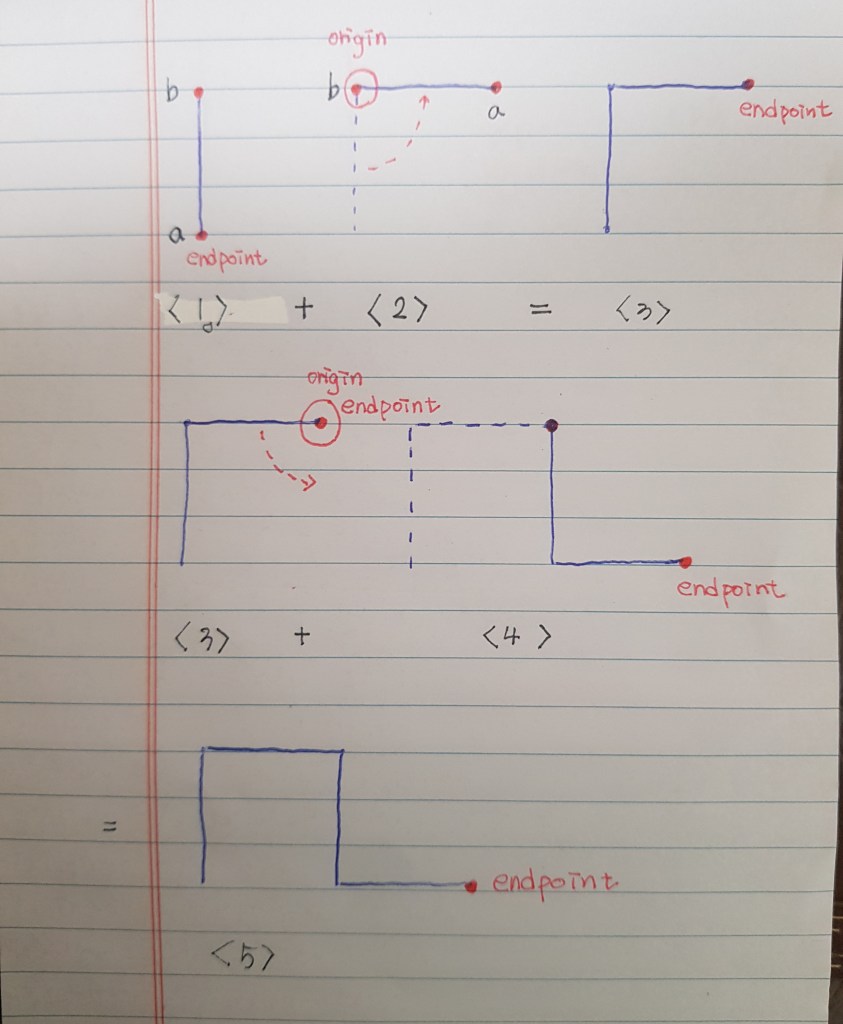 origin
b b a endpoint
a
endpoint
<1> + <2> = <3>
origin
endpoint
endpoint
<3> + <4>
=
endpoint
<5>